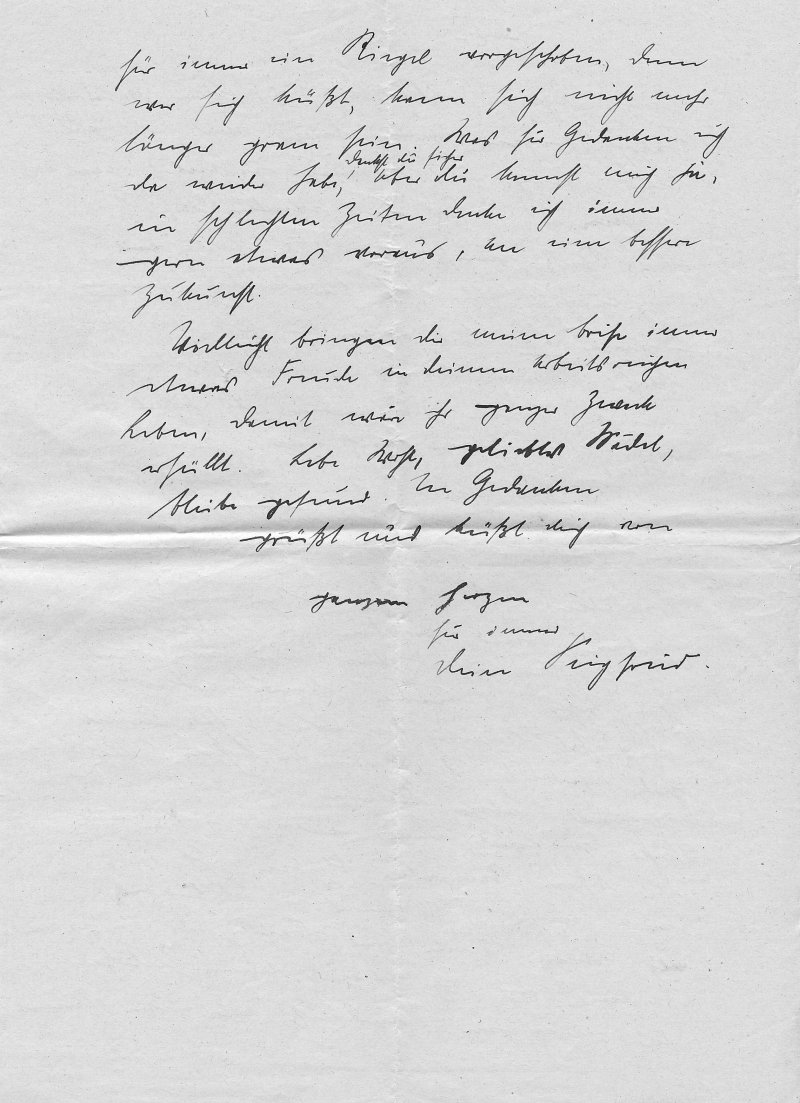 für immer ein Riegel vorgeschoben, denn
wer sich küßt, kann sich nicht mehr
länger gram sein. Was für Gedanken ich
denkst du sicher
da wieder habe, aber du kennst mich ja,
in schlechten Zeiten denke ich immer
gern etwas voraus, an eine bessere
Zukunft.
Vielleicht bringen dir meine Briefe immer
etwas Freude in deinem arbeitsreichen
Leben, damit wäre ihr ganzer Zweck
erfüllt. Lebe Wohl, geliebtes Mädel,
bleibe gesund. In Gedanken
grüßt und küßt dich von
ganzem Herzen
für immer
dein Siegfried.